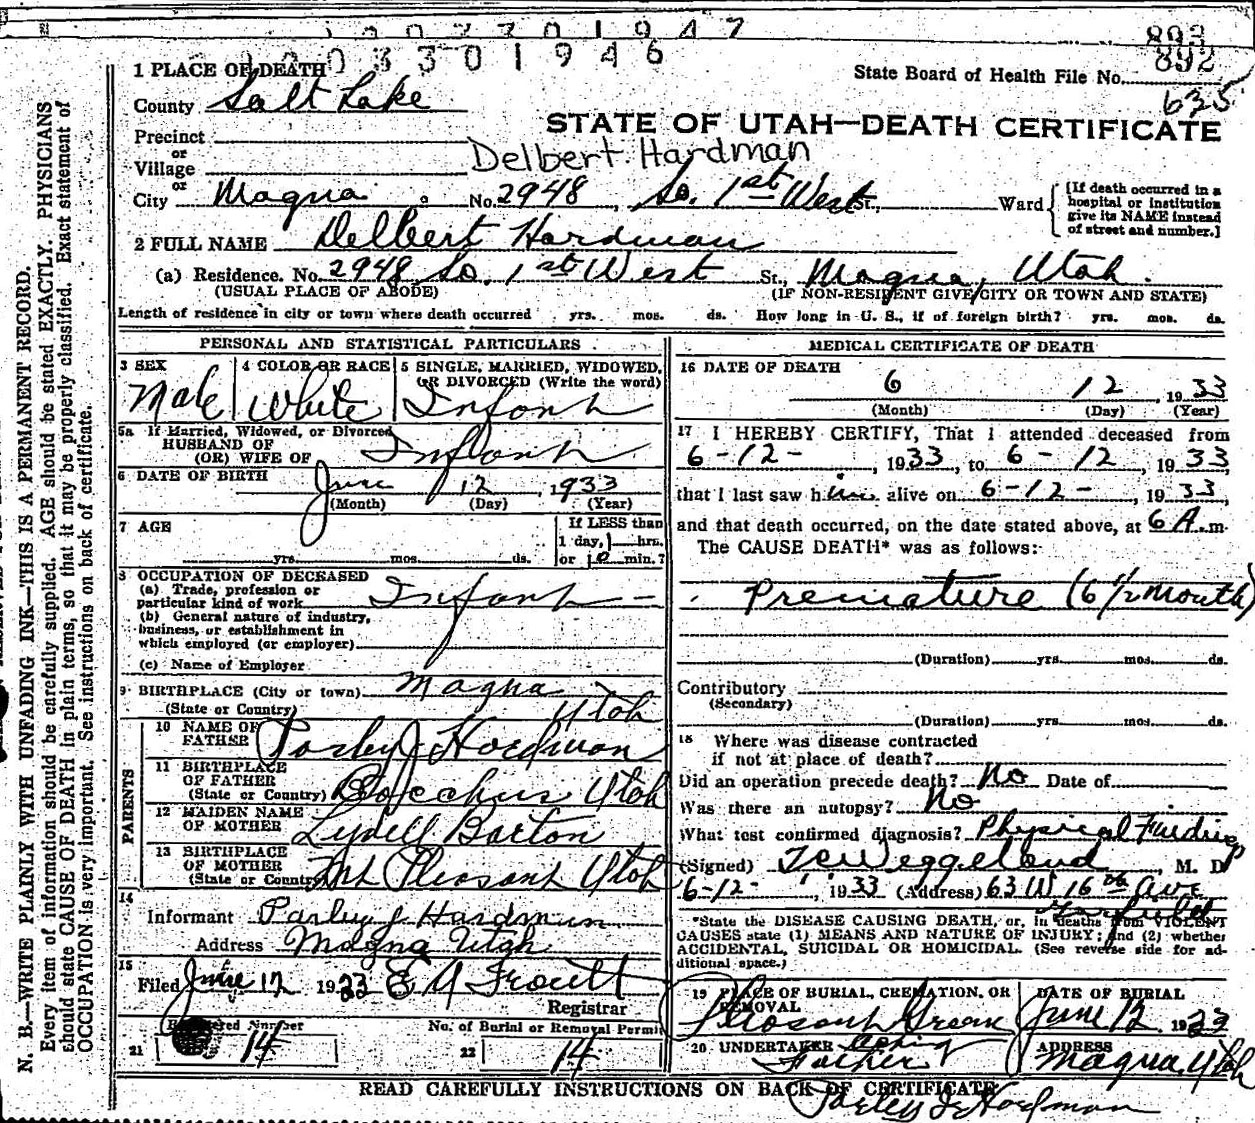 893
03301946 892
1 PLACE OF DEATH State Board of Health File No.
County Salt Lake 635
STATE OF UTAH—DEATH CERTIFICATE
Precinct
or Delbert Hardman
Village
or
City Magna No. 2948 So. 1st West St., Ward [If death occurred in a hospital or institution give its NAME instead of street and number.]
2 FULL NAME Delbert Hardman
(a) Residence. No. 2948 So. 1st West St., Magna, Utah.
(USUAL PLACE OF ABODE) (IF NON-RESIDENT GIVE CITY OR TOWN AND STATE)
Length of residence in city or town where death occurred yrs. mos. ds. How long in U. S., if of foreign birth? yrs. mos. ds.
PERSONAL AND STATISTICAL PARTICULARS
3 SEX 4 COLOR OR RACE 5 SINGLE, MARRIED, WIDOWED, OR DIVORCED (Write the word)
Male White Infant
5a If Married, Widowed, or Divorced
HUSBAND OF
(OR) WIFE OF Infant
6 DATE OF BIRTH June 12, 1933
(Month) (Day) (Year)
7 AGE If LESS than
1 day, hrs.
yrs. mos. ds. or 10 min.?
8 OCCUPATION OF DECEASED
(a) Trade, profession or
particular kind of work Infant
(b) General nature of industry,
business, or establishment in
which employed (or employer)
(c) Name of Employer
9 BIRTHPLACE (City or town) Magna
(State or Country) Utah
PARENTS
10 NAME OF FATHER Parley J Hardman
11 BIRTHPLACE
OF FATHER
(State or Country) Utah
12 MAIDEN NAME
OF MOTHER Lydell Barton
13 BIRTHPLACE
OF MOTHER
(State or Country) Mt Pleasant Utah
14
Informant Parley J. Hardman
Address Magna Utah
15
Filed June 12 1933 E A
Registrar
Registered Number No. of Burial or Removal Permit
21 14 22 14
MEDICAL CERTIFICATE OF DEATH
16 DATE OF DEATH
6 12 , 1933
(Month) (Day) (Year)
17 I HEREBY CERTIFY, That I attended deceased from
6-12-, 1933, to 6-12, 1933,
that I last saw him alive on 6-12-, 1933,
and that death occurred, on the date stated above, at 6 A.m.
The CAUSE DEATH* was as follows:
Premature (6 1/2 month)
(Duration) yrs. mos. ds.
Contributory
(Secondary)
(Duration) yrs. mos. ds.
18 Where was disease contracted
if not at place of death?
Did an operation precede death? No Date of
Was there an autopsy? No
What test confirmed diagnosis? Physical Findings
(Signed) , M. D
6-12-, 1933 (Address) 63 W 16 Ave
Garfield
*State the DISEASE CAUSING DEATH, or, in deaths from VIOLENT
CAUSES state (1) MEANS AND NATURE OF INJURY; and (2) whether
ACCIDENTAL, SUICIDAL OR HOMICIDAL. (See reverse side for ad-
ditional space.)
19 PLACE OF BURIAL, CREMATION, OR REMOVAL DATE OF BURIAL
Pleasant Green June 12 1933
20 UNDERTAKER Acting ADDRESS
Father Magna, Utah
READ CAREFULLY INSTRUCTIONS ON BACK OF CERTIFICATE
Parley J. Hardman
N. B.—WRITE PLAINLY WITH UNFADING INK—THIS IS A PERMANENT RECORD.
Every item of information should be carefully supplied. AGE should be stated EXACTLY. PHYSICIANS
should state CAUSE OF DEATH in plain terms, so that it may be properly classified. Exact statement of
OCCUPATION is very important. See instructions on back of certificate.